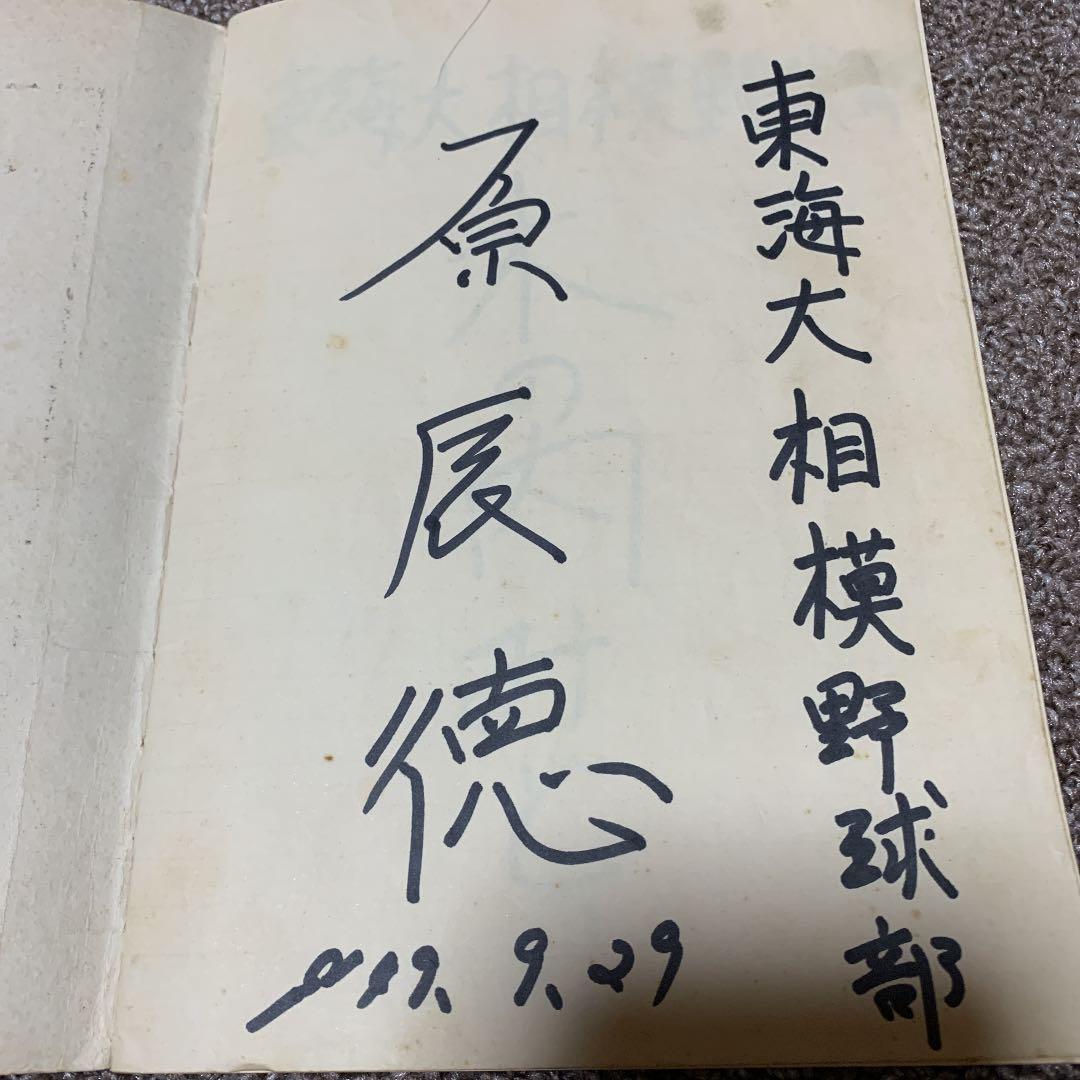 東海大相模野球部
原辰徳
49. 9. 29